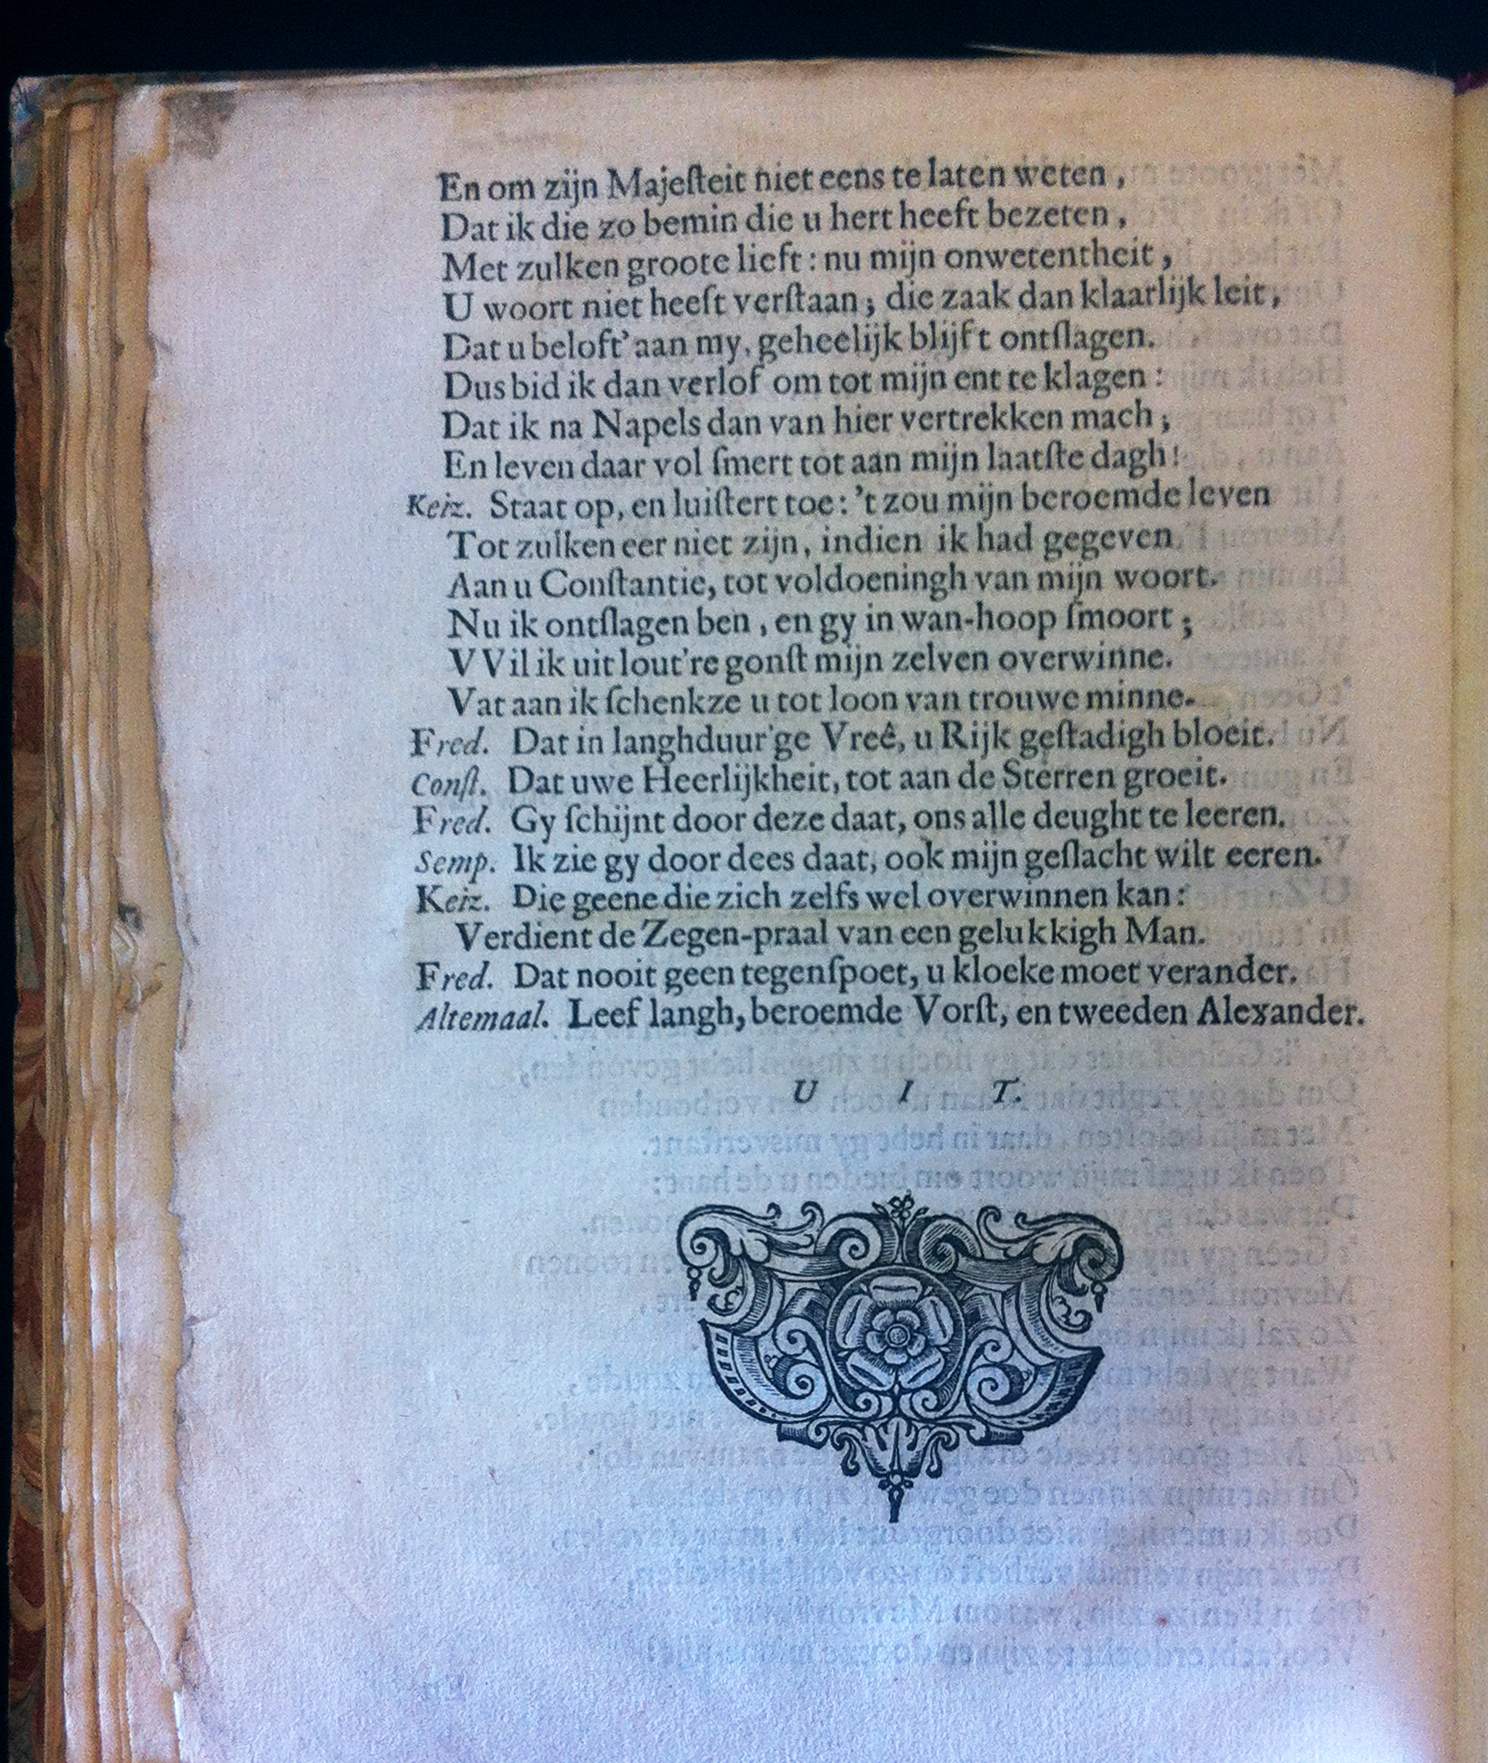 En om zijn Majeſteit niet eens te laten weten,
Dat ik die zo bemin die u hert heeft bezeten,
Met zulken groote lieft: nu mijn onwetentheit,
U woort niet heeft verſtaan; die zaak dan klaarlijk leit,
Dat u beloft' aan my, geheelijk blijft ontſlagen.
Dus bid ik dan verlof om tot mijn ent te klagen:
Dat ik na Napels dan van hier vertrekken mach;
En leven daar vol ſmert tot aan mijn laatſte dagh!
Keiz. Staat op, en luiſtert toe: 't zou mijn beroemde leven
Tot zulken eer niet zijn, indien ik had gegeven
Aan u Conſtantie, tot voldoeningh van mijn woort.
Nu ik ontſlagen ben, en gy in wan-hoop ſmoort;
VVil ik uit lout're gonſt mijn zelven overwinne.
Vat aan ik ſchenkze u tot loon van trouwe minne.
Fred. Dat in langhduur'ge Vreê, u Rijk geſtadigh bloeit.
Conſt. Dat uwe Heerlijkheit, tot aan de Sterren groeit.
Fred. Gy ſchijnt door deze daat, ons alle deught te leeren.
Semp. Ik zie gy door dees daat, ook mijn geſlacht wilt eeren.
Keiz. Die geene die zich zelfs wel overwinnen kan:
Verdient de Zegen-praal van een gelukkigh Man.
Fred. Dat nooit geen tegenſpoet, u kloeke moet verander.
Altemaal. Leef langh, beroemde Vorſt, en tweeden Alexander.
U I T.